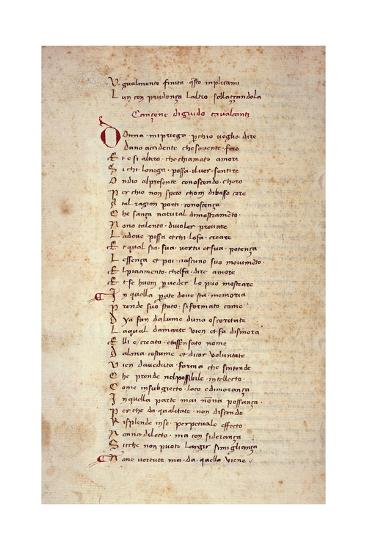 Vgualmente finita questo implicami
Lun con prudença laltro sollaççandola
Cançone diguido caualcanti
Donna mipriega perchio voglio dire
Duno accidente che souente fero
Et e si altero chechiamato amore
Si chi lonega possa iluer sentire
Ondio alpresente conoscendo chero
Perchio non spero chom dibasso core
Atal ragion porti conoscença
Che sança natural dimostramento
Nono talento diuoler prouare
Ladoue possa et chi losa creare
E qual sia sua vertu et sua potença
Lessença et poi ciascuno suo mouimento
El piacimento chelfa dire amore
E se huom pueder lo puo mostrare
In quella parte doue sta memoria
Prende suo stato si formato come
Dyafan dalume duna oscuritate
Laqual damarte vien et fa dimora
Elli e creato et a sensato nome
Dalma costume et dicor voluntate
Vien daveduta forma che sintende
Che prende nelpossibile intelletto
Come insubgiecto loco edimorança
In quella parte mai nona possança
Perche da qualitate non discende
Risplende inse perpetuale effecto
Anon dilecto ma con siderança
Sicche non puote largir simigliança
None vertute ma da quella viene